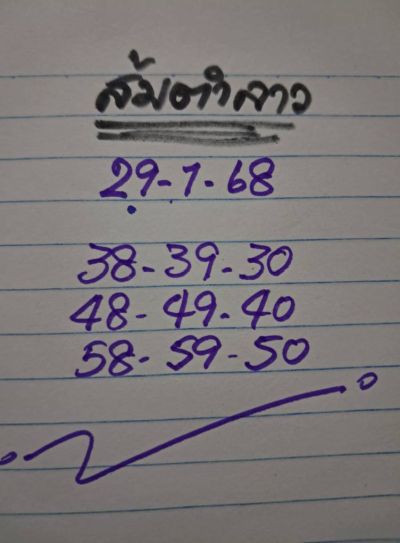 ส้มตำลาว
29-1-68
38-39-30
48-49-40
58-59-50